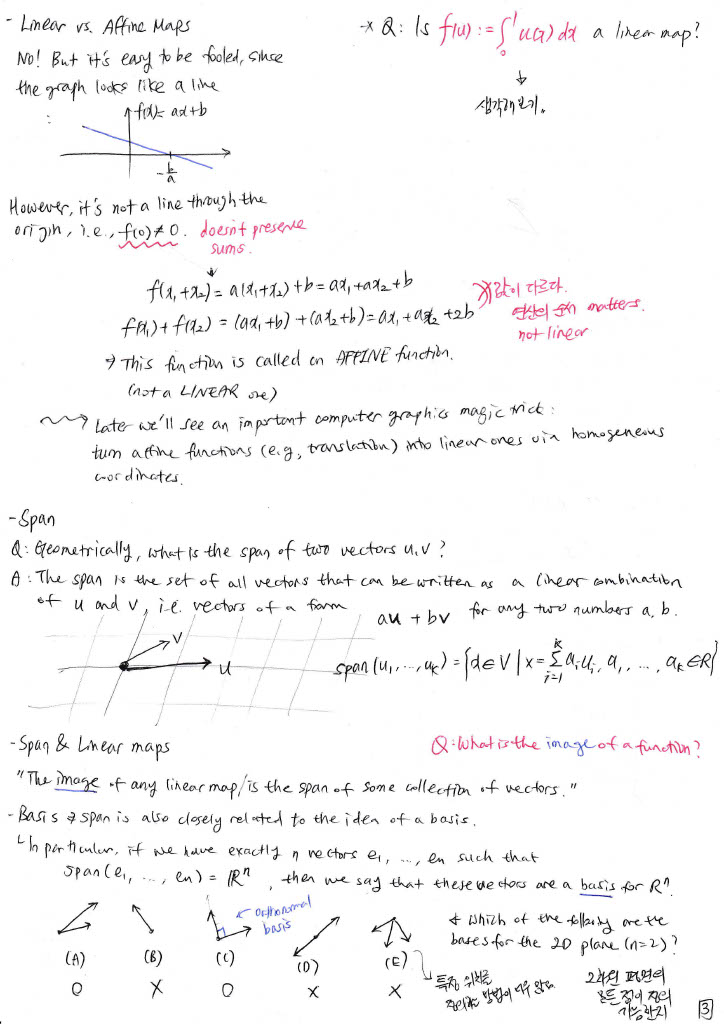 - Linear vs. Affine Maps
No! But it's easy to be fooled, since
the graph looks like a line
:
f(x) = ax+b
- b/a
However, it's not a line through the
origin, i.e., f(0) ≠ 0. doesn't preserve
sums.
* Q: Is f(u) := ∫₀¹ u(x) dx a linear map?
↓
생각해보기.
f(x₁+x₂) = a(x₁+x₂)+b = ax₁+ax₂+b
f(x₁)+f(x₂) = (ax₁+b)+(ax₂+b) = ax₁+ax₂+2b
값이 다르다.
연산의 순서 matters.
not linear
→ This function is called an AFFINE function.
(not a LINEAR one)
Later we'll see an important computer graphics magic trick:
turn affine functions (e.g., translation) into linear ones via homogeneous
coordinates.
- Span
Q: Geometrically, what is the span of two vectors u, v?
A: The span is the set of all vectors that can be written as a linear combination
of u and v, i.e. vectors of a form au + bv for any two numbers a, b.
v
u
span(u₁, ..., uₖ) = {x ∈ V | x = Σᵢ₌₁ᵏ aᵢuᵢ, a₁, ..., aₖ ∈ R}
- Span & Linear maps
Q: What is the image of a function?
"The image of any linear map/is the span of some collection of vectors."
- Basis → span is also closely related to the idea of a basis.
In particular, if we have exactly n vectors e₁, ..., en such that
span(e₁, ..., en) = Rⁿ, then we say that these vectors are a basis for Rⁿ.
← orthonormal
basis
which of the following are the
bases for the 2D plane (n=2)?
(A) (B) (C) (D) (E)
O X O X X
특정 위치를
정의하는 방법이 너무 많음
2차원 평면의
모든 점이 정의
가능한지
3